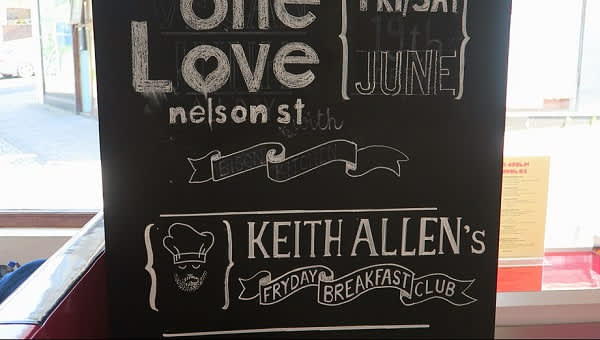 one
FRI/SAT
19th
Love
JUNE
nelson st
with
BISON KITCHEN
KEITH ALLEN's
FRYDAY BREAKFAST CLUB